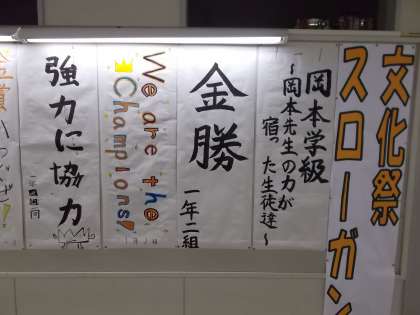 文化祭
スローガン
岡本学級
〜岡本先生の力が
宿った生徒達〜
金勝
一年二組
We are the
Champions!
強力に協力
金賞